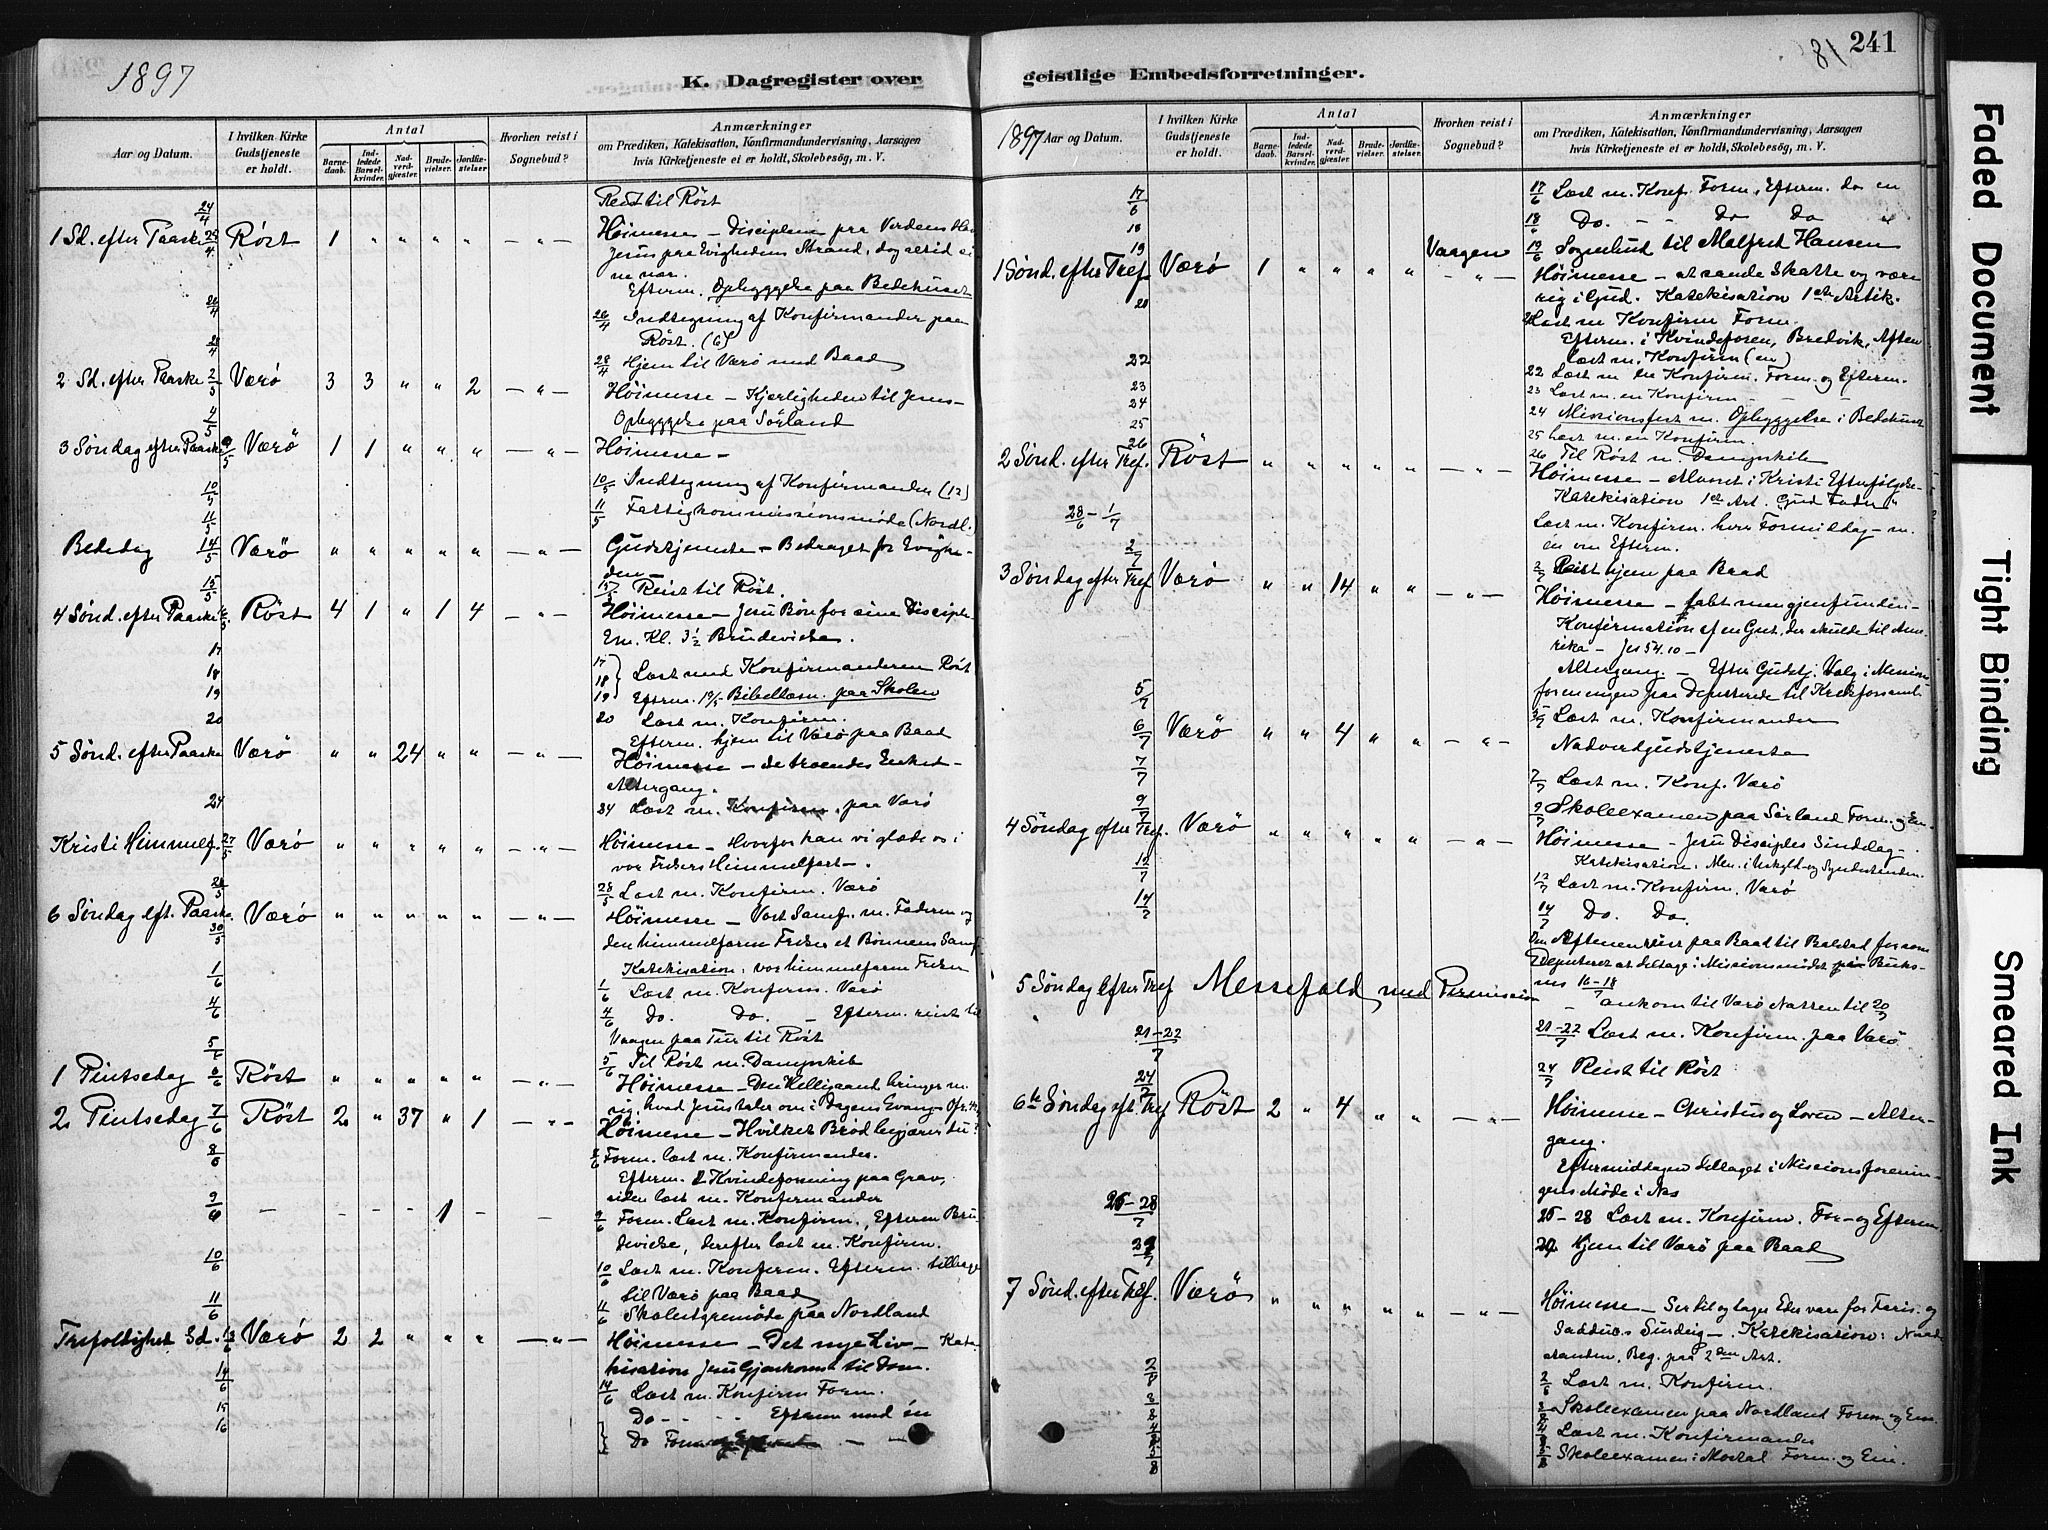 1897
K. Dagregister over
Aar og Datum.
I hvilken Kirke Gudstjeneste er holdt.
Antal
Barnedaab.
Indledede Barselkvinder.
Nadverdgjester.
Brudevielser.
Jordfæstelser
Hvorhen reist i Sognebud?
Anmærkninger
om Prædiken, Katekisation, Konfirmandundervisning, Aarsagen
hvis Kirketjeneste ei er holdt, Skolebesøg, m. V.
24/4 Reist til Röst
1 Sd. efter Paaske 25/4 Röst 1 " " " " — " — Höimesse — Disciplene paa Verdens Hav
Jesus paa Evighedens Strand, dog altid
nær.
Efterm. Opbyggelse paa Bedehuset
26/4 Indtegning af Konfirmander paa
Röst. (6)
28/4 Hjem til Værö med Baad
2 Sd. efter Paaske 2/5 Værö 3 3 " " 2 — " — Höimesse — Kjærligheden til Jesus —
4/5 Opbyggelse paa Sörland
3 Söndag efter Paaske 9/5 Værö 1 1 " " " — " — Höimesse —
10/5 Indtegning af Konfirmander (12)
11/5 Fattigkommissionsmöde (Nordl.)
Bededag 14/5 Værö " " " " " — " — Gudstjeneste — Bedraget for Evighe-
den —
15/5 Reist til Röst.
4 Sönd. efter Paaske 16/5 Röst 4 1 " 1 4 — " — Höimesse — Jesu Bön for sine Disciple
Em. Kl. 3½ Brudevielse.
17
18 Læst med Konfirmanderne Röst
19 Efterm. 19/5 Bibellæsn. paa Skolen
20 Læst m. Konfirm.
Efterm. hjem til Værö paa Baad
5 Sönd. efter Paaske Værö " " 24 " " — " — Höimesse — de troendes Enhed —
Altergang.
24 Læst m. Konfirm. paa Værö
Kristi Himmelf. 27/5 Værö " " " " " — " — Höimesse — Hvorfor kan vi glæde os i
vor Frelsers Himmelfart —.
28/5 Læst m. Konfirm. Værö
6 Söndag eft. Paaske 30/5 Værö " " " " " — " — Höimesse — Vort Samf. m. Faderen og
den himmelfarne Frelser et Bönnens Samf.
Katekisation: vor himmelfarne Frelser
1/6 Læst m. Konfirm. Værö
4/6 Do. Do. — Efterm. reist til
Vaagen paa Tur til Röst
5/6 Til Röst m. Dampskib
1 Pintsedag 6/6 Röst " " " " " — " — Höimesse — Den Helligaand bringer m.
sig, hvad Jesus taler om i Dagens Evang.
2. Pintsedag 7/6 Röst 2 " 37 " 1 — " — Höimesse — Hvilket Bröd begjærer du?
8/6 Form. læst m. Konfirmander.
Efterm. I Kvindeforening paa Grav,
siden læst m. Konfirmander
9/6 — — — 1 — — Form. Læst m. Konfirm., Efterm Bru-
devielse, derefter læst m. Konfirm.
10/6 Læst m. Konfirm. Efterm. tilbage
til Værö paa Baad
11/6 Skolestyremöde paa Nordland
Trefoldighet Sd. 13/6 Værö 2 2 " " " — " — Höimesse — Det nye Liv — Kate-
kisation Jesu Gjenkomst til Dom.
14/6 Læst m. Konfirm Form.
15 Do — — Efterm med én
16 Do Form og Efterm — —
81
241
geistlige Embedsforretninger.
1897 Aar og Datum.
I hvilken Kirke Gudstjeneste er holdt.
Antal
Barnedaab.
Indledede Barselkvinder.
Nadverdgjester.
Brudevielser.
Jordfæstelser.
Hvorhen reist i Sognebud?
Anmærkninger
om Prædiken, Katekisation, Konfirmandundervisning, Aarsagen
hvis Kirketjeneste ei er holdt, Skolebesøg, m. V.
17/6 Læst m. Konf. Form., Efterm. do en
18 Do. — — Do Do
19/6 Vaagen Sognebud til Malfret Hansen
1 Sönd. efter Tref. Værö 1 " " " " — " — Höimesse — at sande Skatte og være
rig i Gud. Katekisation 1ste Artik.
Læst m Konfirm Form.
Efterm. i Kvindeforen, Bredvik, Aften
læst m. Konfirm (en)
22 Læst m tre Konfirm. Form. og Efterm.
23 Læst m. en Konfirm — — —
24 Missionsfest m. Opbyggelse i Bedehuset
25 Læst m. en Konfirm.
26 Til Röst m. Dampskib
2 Sönd. efter Tref. Röst " " " " " — " — Höimesse — Alvoret i Kristi Efterfölgelse
Katekisation 1ste Art. "Gud Fader"
28/6 – 1/7 Læst m. Konfirm. hver Formiddag — m.
én om Efterm.
2/7 Reist hjem paa Baad
3 Söndag efter Tref. Værö " " 14 " " — " — Höimesse — tabt men gjenfunden —
Konfirmation af en Gut, der skulde til Ame-
rika — Jes 54.10 —
Altergang. — Efter Gudstj. Valg i Missions-
foreningen paa Deputerede til Kredsforsaml.
5/7 Læst m. Konfirmander
6/7 Værö " " 4 " " — " — Nadverdgudstjeneste
7/7 Læst m. Konf. Værö
9/7 Skoleexamen paa Sörland Form. og Em.
4 Söndag efter Tref. Værö " " " " " — " — Höimesse — Jesu Disciples Sindelag —
Katekisation. Men. i Uskyld- og Syndestanden
12/7 Læst m. Konfirm. Værö
14/7 Do. Do.
Om Aftenen reist paa Baad til Balstad for som
Deputeret at deltage i Missionsmödet paa Buks-
nes 16–18/7 — ankom til Værö Natten til 20/7
5 Söndag efter Tref Messefald med Permission
21–22/7 Læst m. Konfirm. paa Værö
24/7 Reist til Röst
6te Söndag eft. Tref Röst 2 " 4 " " — " — Höimesse — Christus og Loven — Alter-
gang.
Eftermiddagen deltaget i Missionsforenin-
gens Möde i
26–28/7 Læst m. Konfirm. For- og Efterm.
29/7 Hjem til Værö paa Baad
7 Sönd. efter Tref. Værö " " " " " — " — Höimesse — Ser til og tager Eder vare for Faris. og
Sadduc's Surdeig —. Katekisation: Naade-
standen, Beg. paa 2den Art.
2/8 Læst m. Konfirm.
3/8 Skoleexamen paa Nordland Form og Em.
4/8 Læst m. Konfirmander
5/8 Skoleexamen i Mostad Form. og Em.
Faded Document
Tight Binding
Smeared Ink